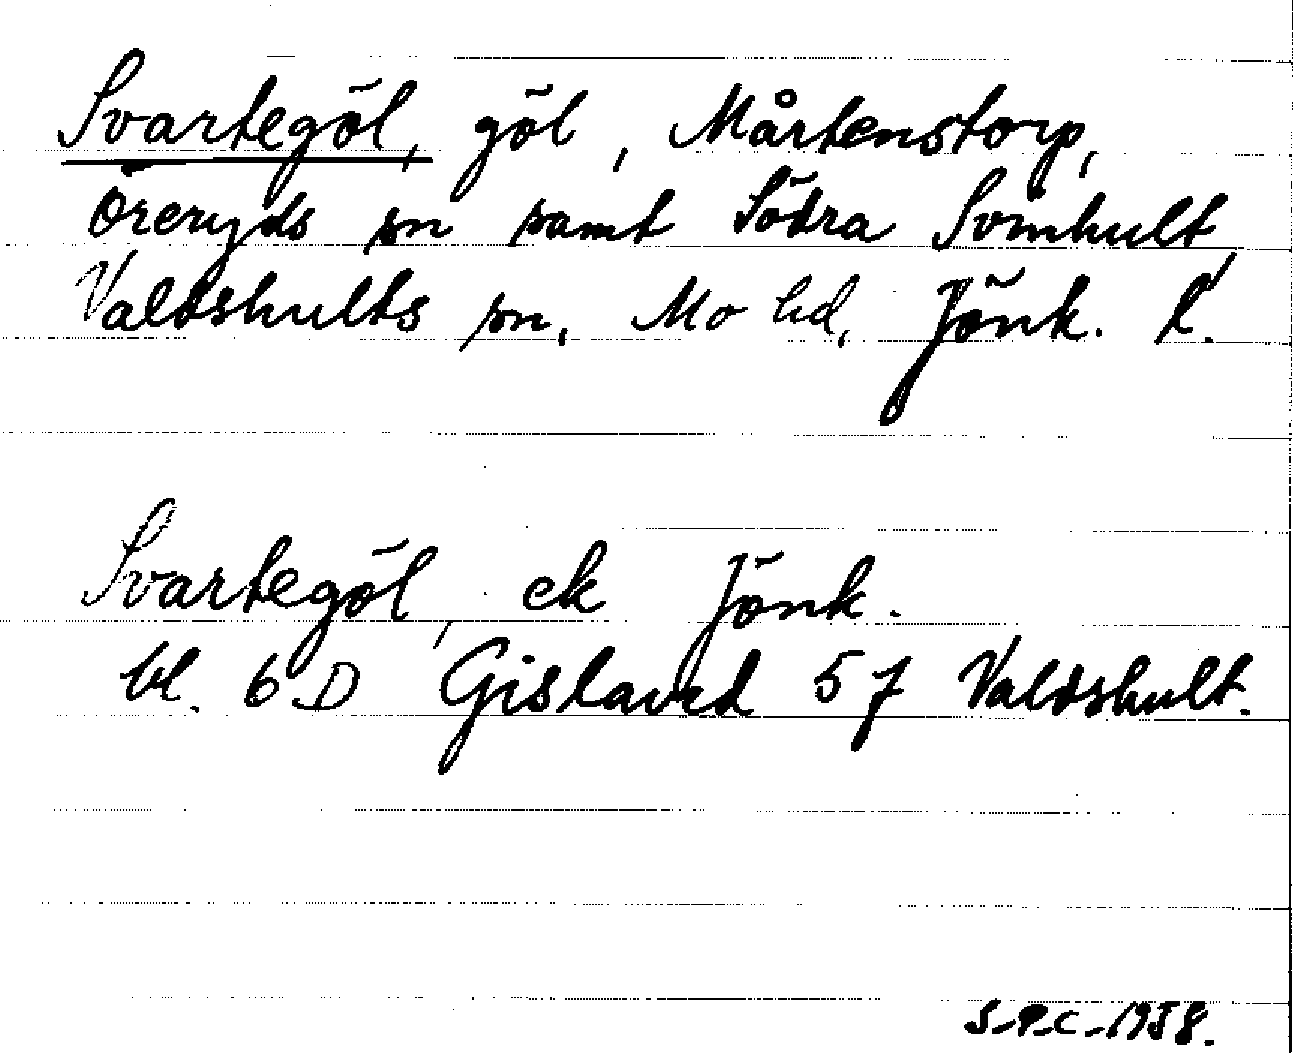 Svartegöl, göl, Mårtenstorp,
Öreryds sn samt Södra Svinhult,
Valdshults sn, Mo hd, Jönk. l.
Svartegöl, ek Jönk.
bl. 6 D Gislaved 57 Valdshult.
S-P-C-1958.